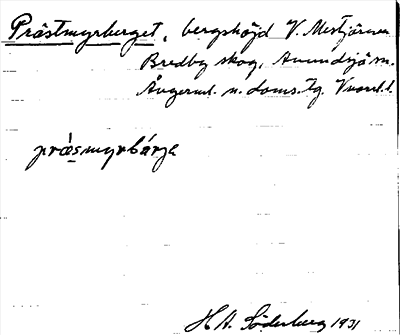 Prästmyrberget, bergshöjd V. Mestjärnen
Bredby skog, Anundsjö sn.
Ångerml. n. doms. tg. Vnorrl. l.
prä́smyrbárje
H A. Söderberg 1931